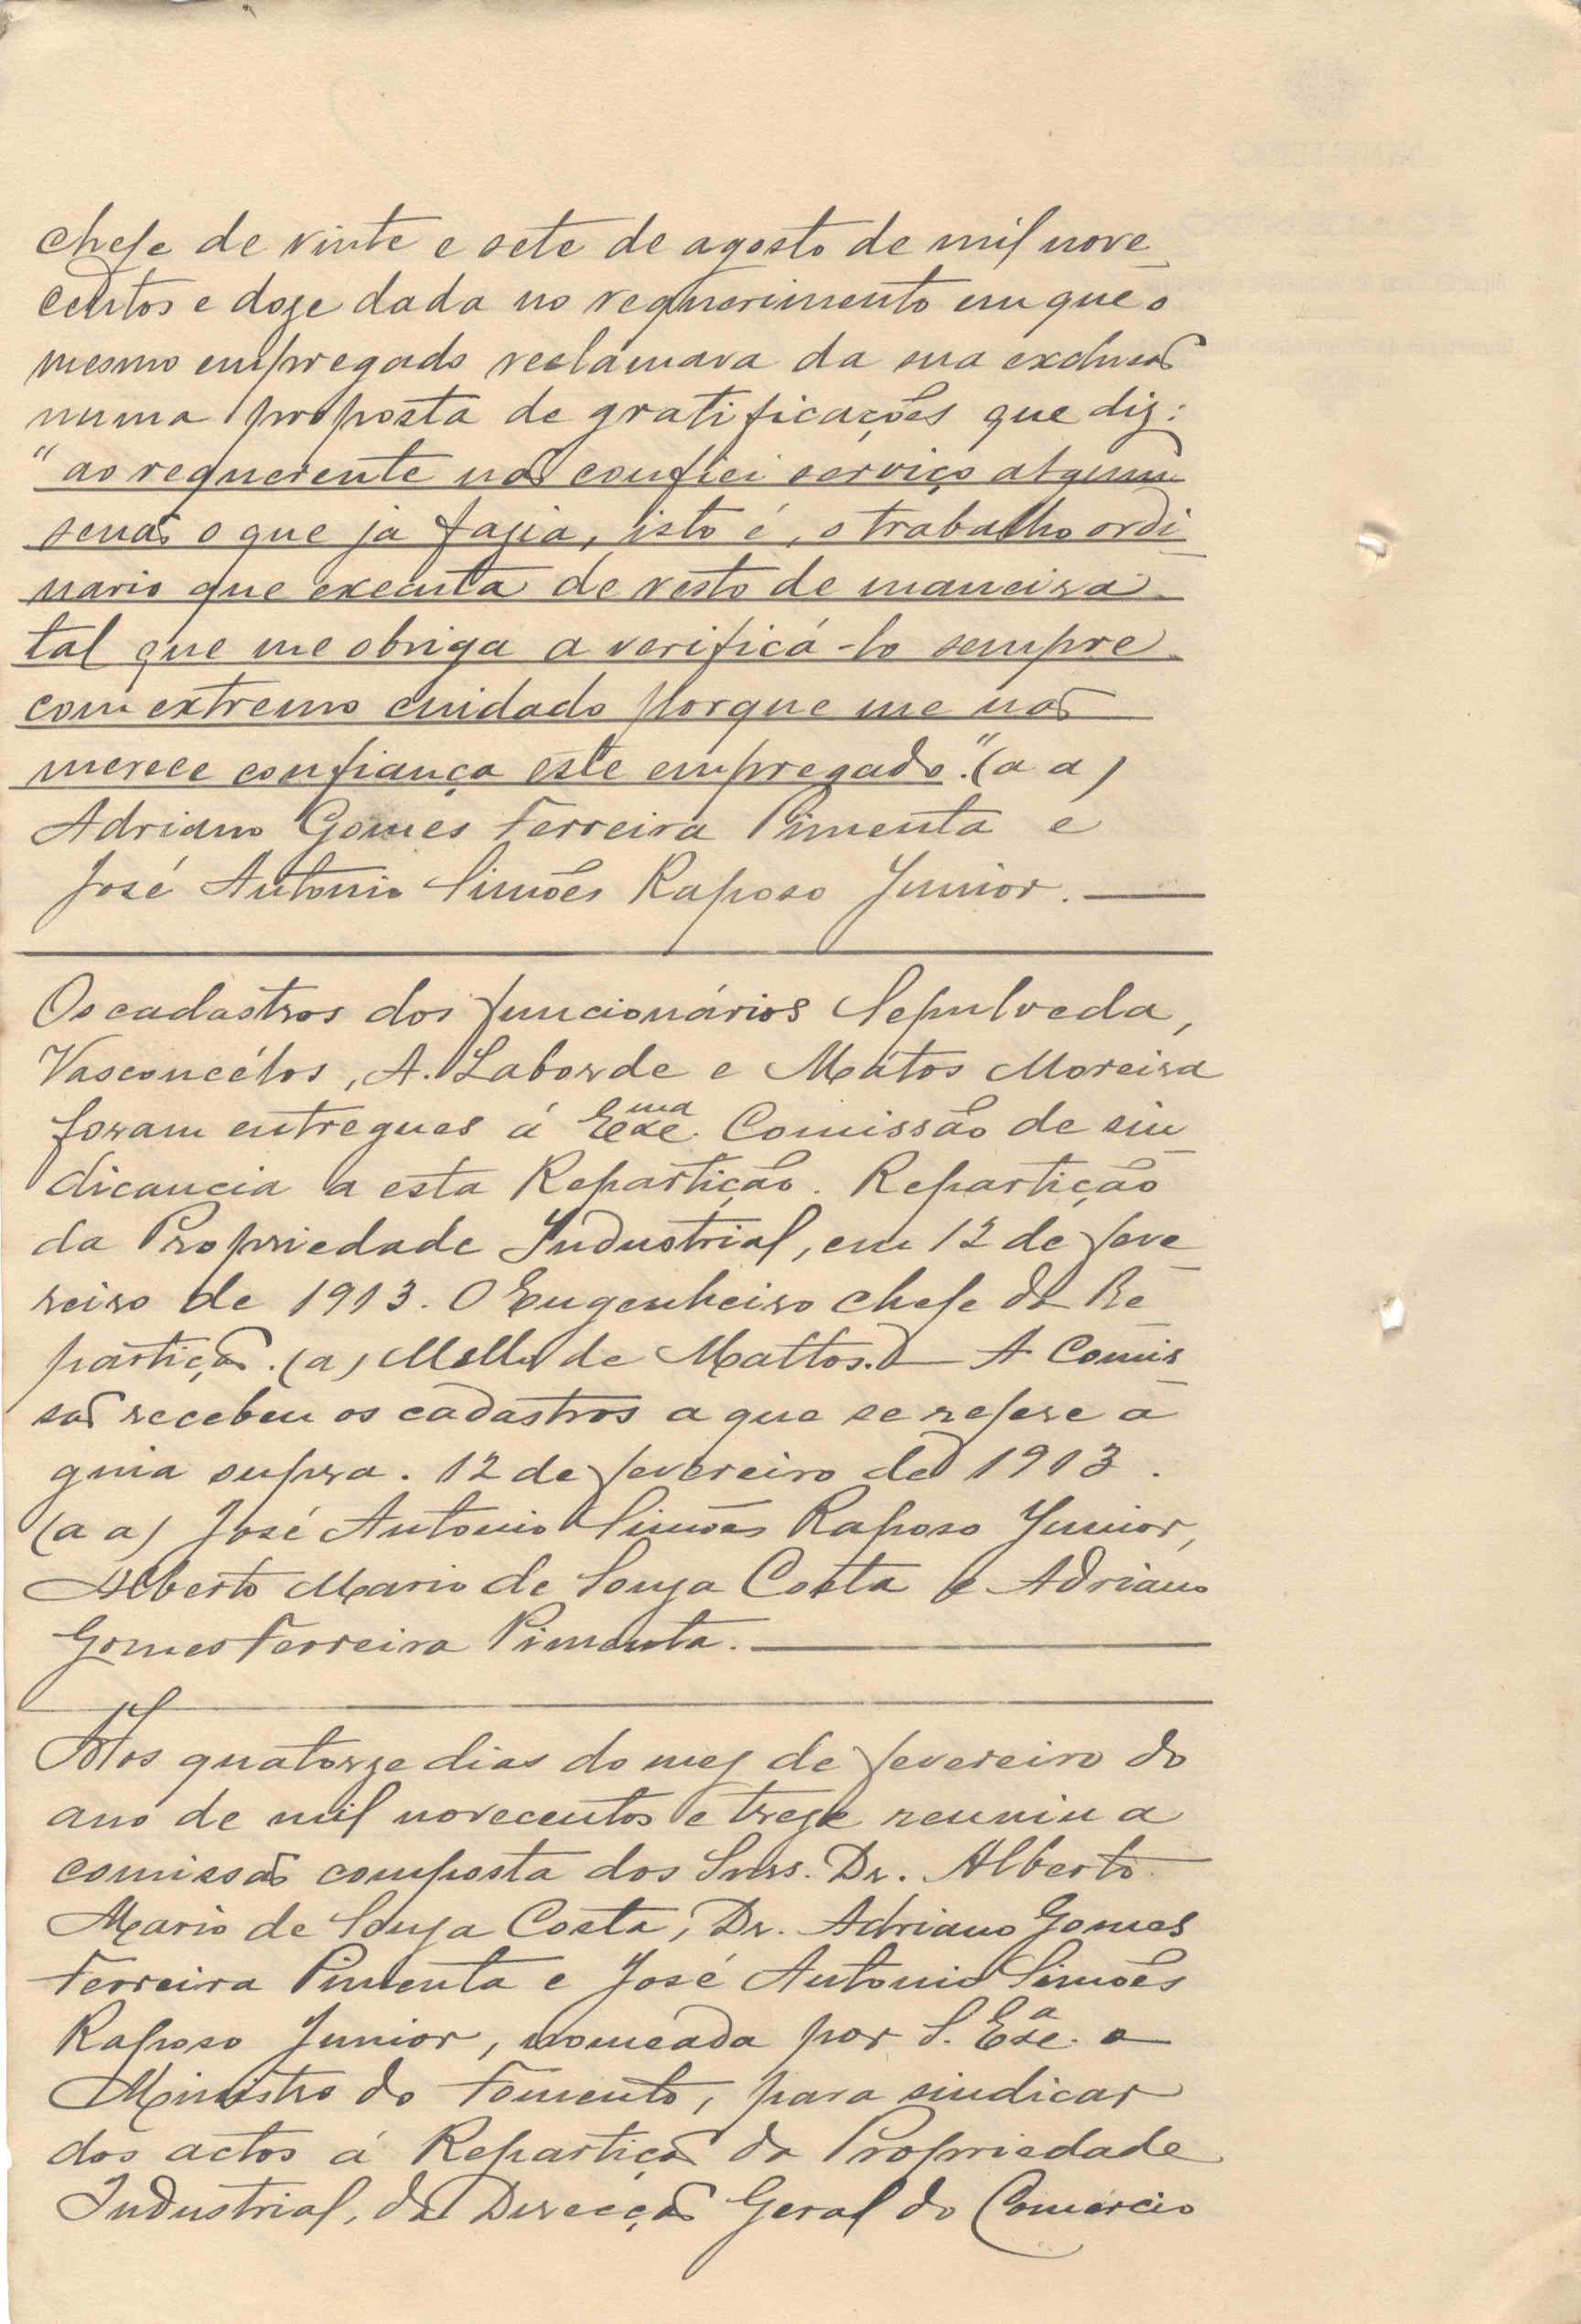 chefe de vinte e sete de agosto de mil nove-
centos e doze dada no requerimento em que o
mesmo empregado reclamava da sua exclusão
numa proposta de gratificações que diz:
"ao requerente não confiei serviço algum
senão o que já fazia, isto é, o trabalho ordi-
nario que executa de resto de maneira
tal que me obriga a verificá-lo sempre
com extremo cuidado porque me não
merece confiança este empregado." (a a)
Adriano Gomes Ferreira Pimenta e
José Antonio Simões Raposo Junior.
Os cadastros dos funcionários Sepulveda,
Vasconcélos, A. Laborde e Matos Moreira
foram entregues á Exc.ma Comissão de sin-
dicancia a esta Repartição. Repartição
da Propriedade Industrial, em 12 de feve-
reiro de 1913. O Engenheiro chefe da Re-
partição. (a) Mello de Mattos. A Comis-
são recebeu os cadastros a que se refere a
guia supra. 12 de fevereiro de 1913.
(a a) José Antonio Simões Raposo Junior,
Alberto Mario de Souza Costa e Adriano
Gomes Ferreira Pimenta.
Aos quatorze dias do mez de fevereiro do
ano de mil novecentos e treze reuniu a
comissão composta dos Snrs. Dr. Alberto
Mario de Souza Costa, Dr. Adriano Gomes
Ferreira Pimenta e José Antonio Simões
Raposo Junior, nomeada por S. Exc.a o
Ministro do Fomento, para sindicar
dos actos á Repartição da Propriedade
Industrial, da Direcção Geral do Comércio